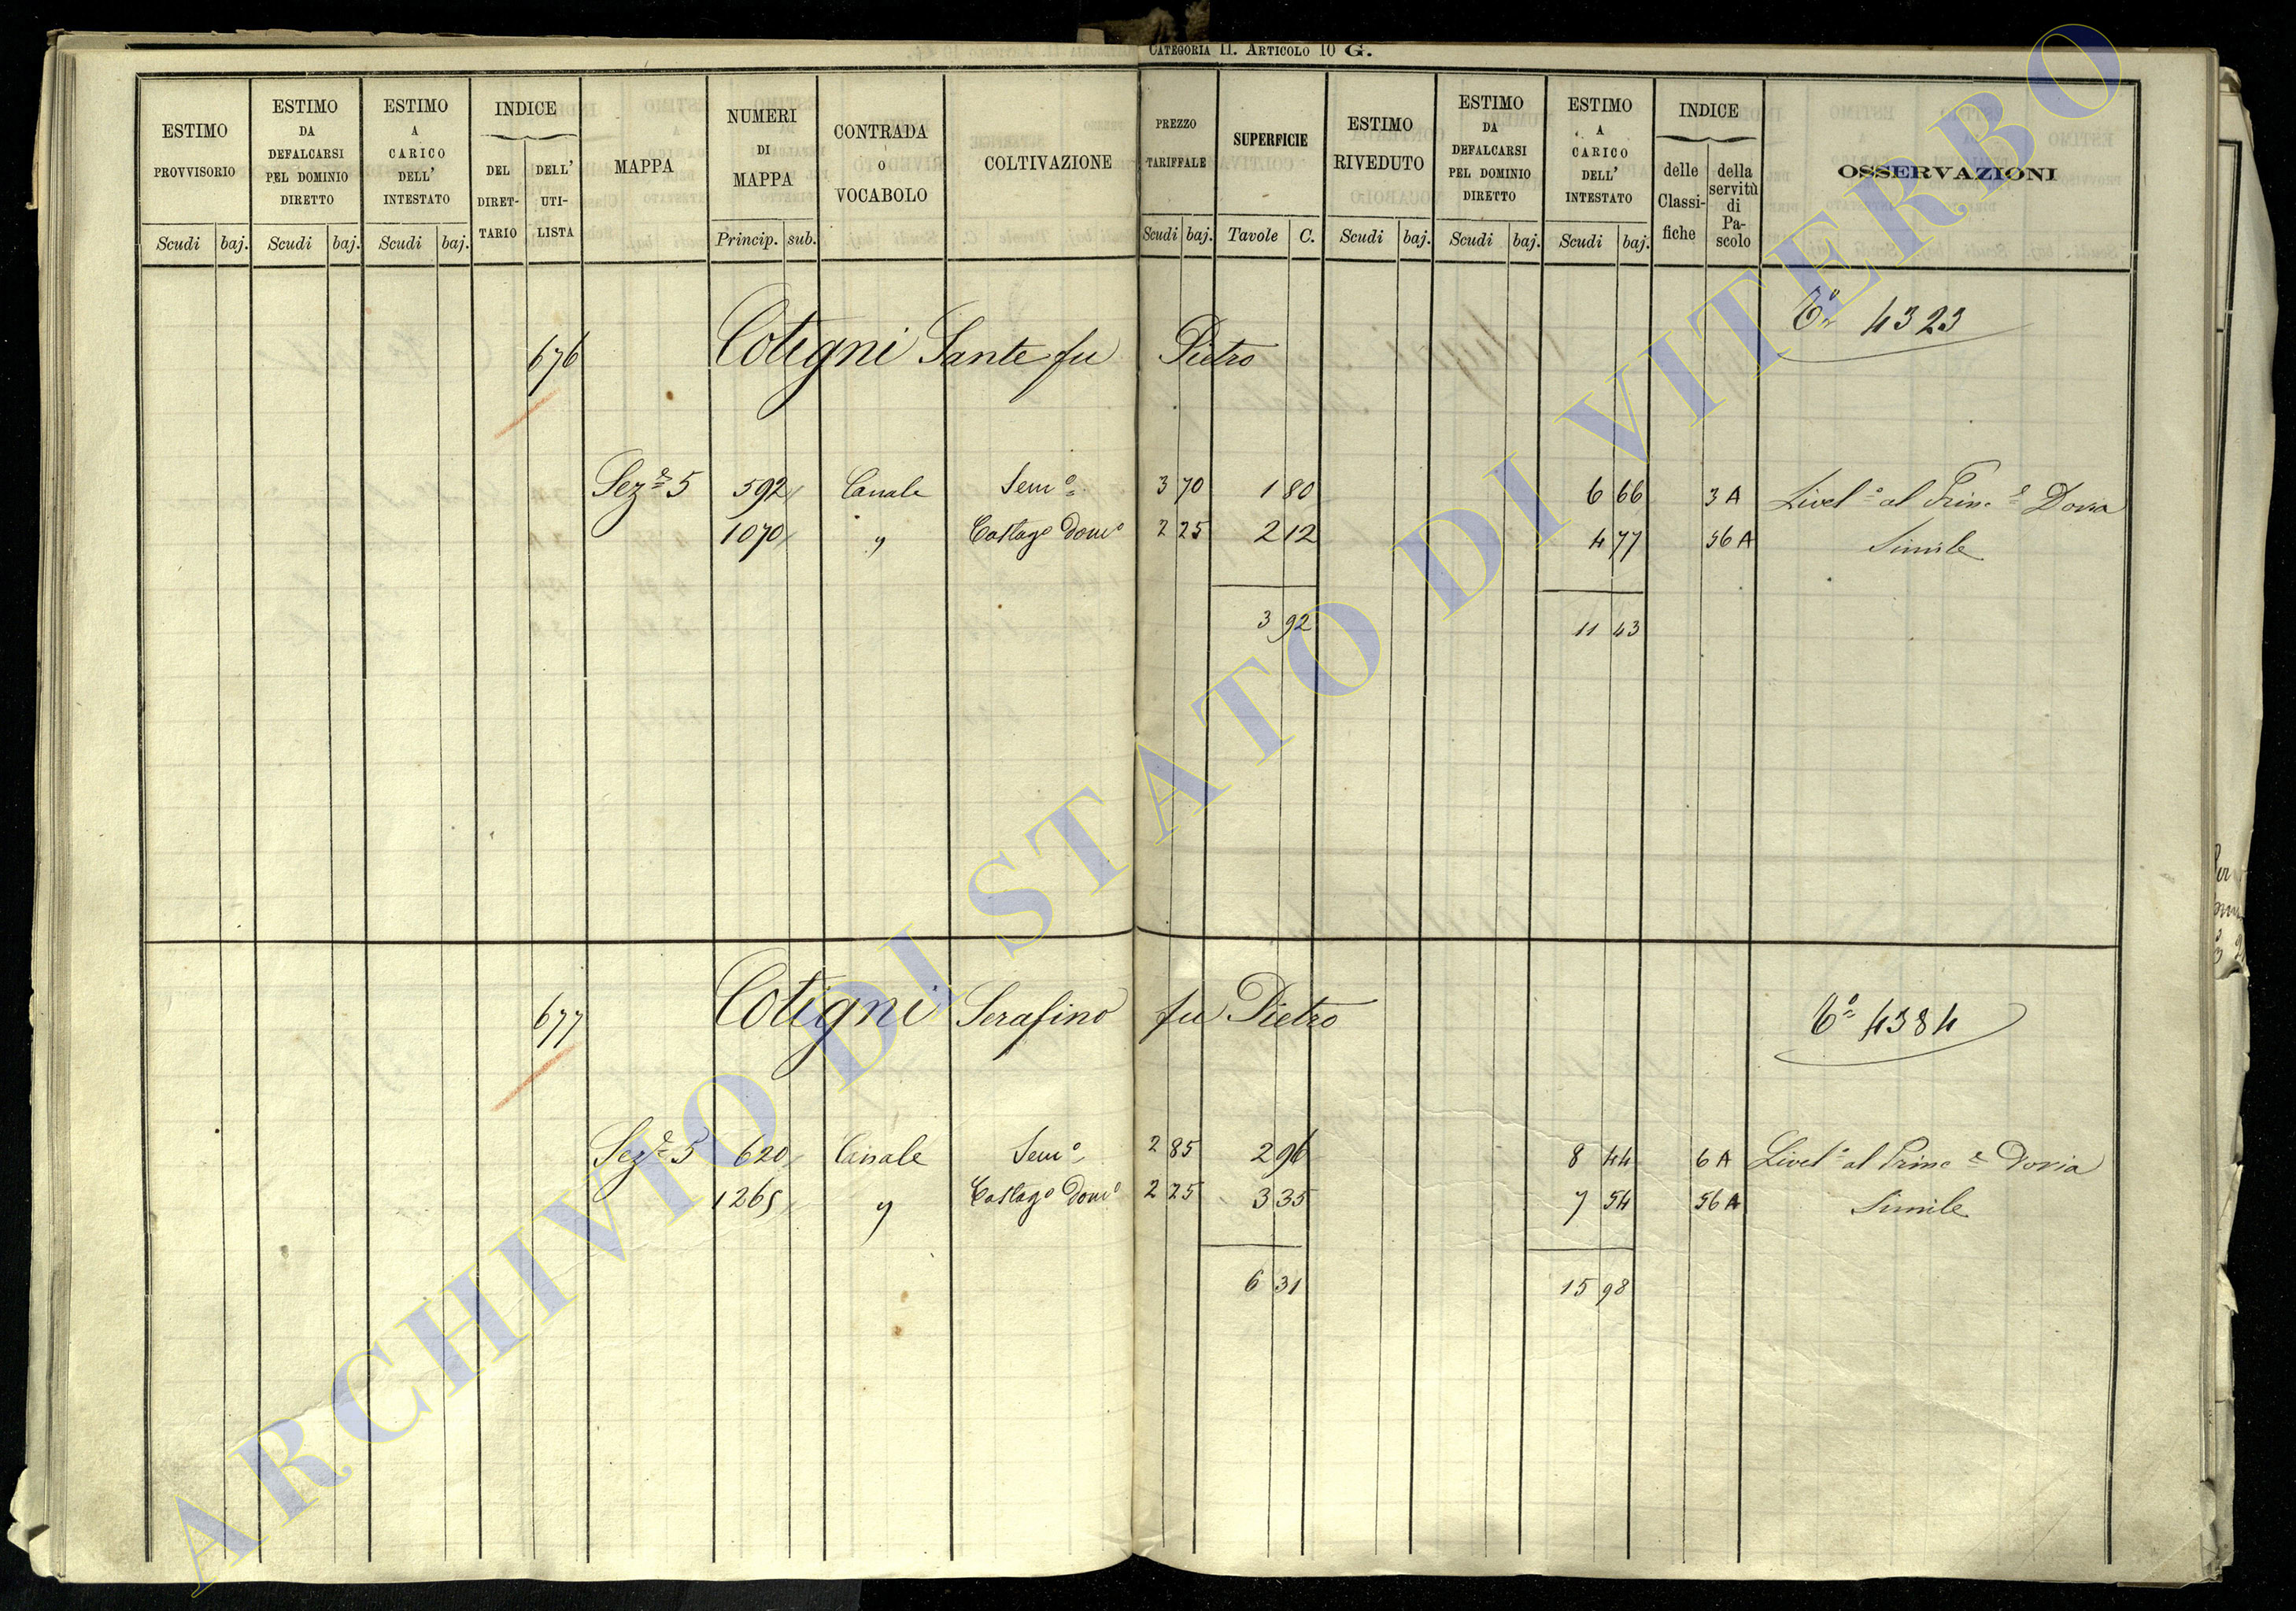 CATEGORIA II. ARTICOLO 10 G.
ESTIMO PROVVISORIO Scudi baj.
ESTIMO DA DEFALCARSI PEL DOMINIO DIRETTO Scudi baj.
ESTIMO A CARICO DELL' INTESTATO Scudi baj.
INDICE DEL DIRETTARIO DELL' UTILISTA
MAPPA
NUMERI DI MAPPA Princip. sub.
CONTRADA O VOCABOLO
COLTIVAZIONE
PREZZO TARIFFALE Scudi baj.
SUPERFICIE Tavole C.
ESTIMO RIVEDUTO Scudi baj.
ESTIMO DA DEFALCARSI PEL DOMINIO DIRETTO Scudi baj.
ESTIMO A CARICO DELL' INTESTATO Scudi baj.
INDICE delle Classifiche della servitù di Pascolo
OSSERVAZIONI
4323
676 Cotigni Sante fu Pietro
Sez.e 5 592 Canale Sem.o 3 70 1 80 6 66 3 A Livel.o al Princ.e Doria
1070 " Castag.o Dom.o 2 25 2 12 4 77 56 A Simile
3 92 11 43
677 Cotigni Serafino fu Pietro
4384
Sez.e 5 620 Canale Sem.o 2 85 2 96 8 44 6 A Livel.o al Princ.e Doria
1265 " Castag.o Dom.o 2 25 3 35 7 54 56 A Simile
6 31 15 98
ARCHIVIO DI STATO DI VITERBO